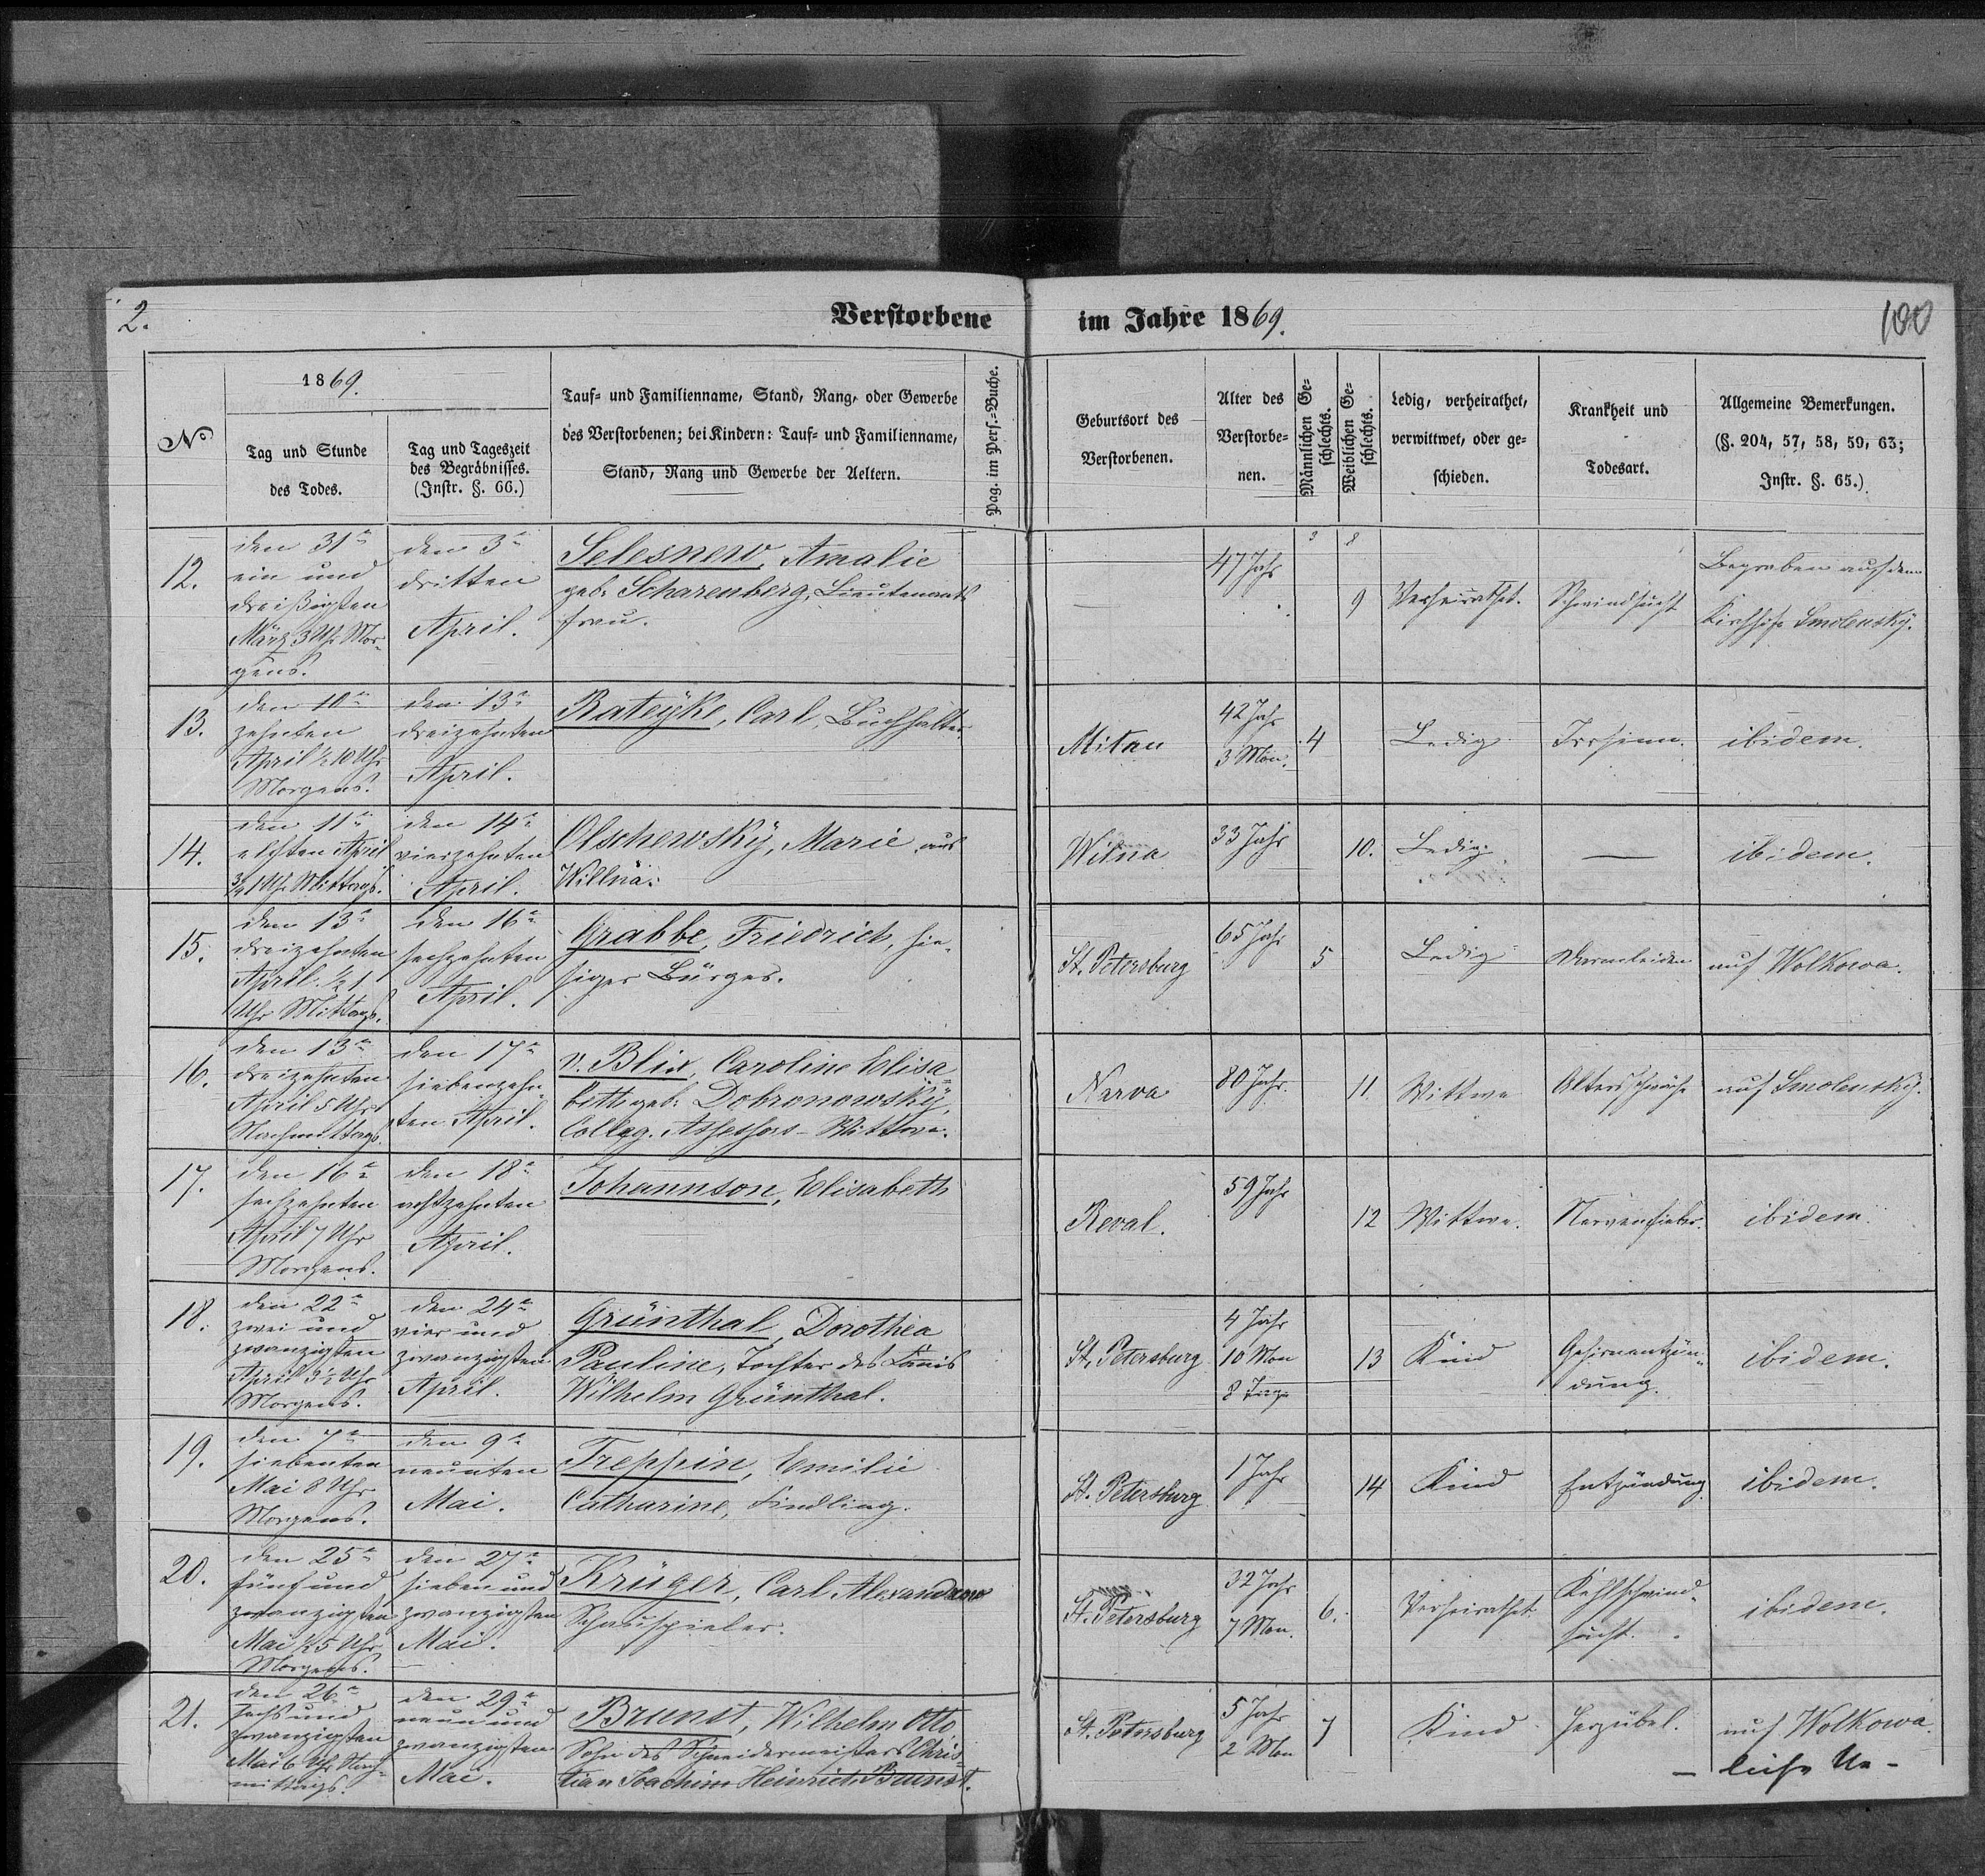 2.
Verstorbene im Jahre 1869.
100
No
1869.
Tag und Stunde
des Todes.
Tag und Tageszeit
des Begräbnisses.
(Instr. §. 66.)
Tauf- und Familienname, Stand, Rang, oder Gewerbe
des Verstorbenen; bei Kindern: Tauf- und Familienname,
Stand, Rang und Gewerbe der Aeltern.
Pag. im Pers.-Buche.
Geburtsort des
Verstorbenen.
Alter des
Verstorbe-
nen.
Männlichen Ge-
schlechts.
Weiblichen Ge-
schlechts.
Ledig, verheirathet,
verwittwet, oder ge-
schieden.
Krankheit und
Todesart.
Allgemeine Bemerkungen.
(§. 204, 57, 58, 59, 63;
Instr. §. 65.)
3
8
12.
den 31n
ein und
dreißigsten
März 3 Uhr Mor-
gens.
den 3n
dritten
April.
Selesnew, Amalie
geb. Scharenberg, Lieutenants
frau.
—
47 Jahr
9
Verheirathet.
Schwindsucht
Begraben auf dem
Kirchhofe Smolensky.
13.
den 10n
zehnten
April ½ 10 Uhr
Morgens.
den 13n
dreizehnten
April.
Rateyke, Carl, Buchhalter.
Mitau
42 Jahr
3 Mon.
4
Ledig
Irrsinn.
ibidem.
14.
den 11n
elften April
¾ 1 Uhr Mittags.
den 14n
vierzehnten
April.
Olschewsky, Marie, aus
Willna.
Wilna
33 Jahr
10.
Ledig.
—
ibidem.
15.
den 13n
dreizehnten
April. ½ 1
Uhr Mittags.
den 16n
sechzehnten
April.
Grabbe, Friedrich, hie-
siger Bürger.
St. Petersburg
65 Jahr
5
Ledig
Darmleiden
auf Wolkowa.
16.
den 13n
dreizehnten
April 5 Uhr
Nachmittags.
den 17n
siebenzehn-
ten April.
v. Blix, Caroline Elisa-
beth geb. Dobronowsky,
Colleg. Assessors-Wittwe.
Narva
80 Jahr.
11.
Wittwe
Altersschwäche
auf Smolensky.
17.
den 16n
sechzehnten
April 7 Uhr
Morgens.
den 18n
achtzehnten
April.
Johannson, Elisabeth
Reval.
59 Jahr
12
Wittwe.
Nervenfieber.
ibidem.
18.
den 22n
zwei und
zwanzigsten
April 3½ Uhr
Morgens.
den 24n
vier und
zwanzigsten
April.
Grünthal, Dorothea
Pauline, Tochter des Tönnis
Wilhelm Grünthal.
St. Petersburg
4 Jahr
10 Mon
8 Tage
13
Kind
Gehirnentzün-
dung.
ibidem.
19.
den 7n
siebenten
Mai 8 Uhr
Morgens.
den 9n
neunten
Mai.
Treppin, Emilie
Catharine, Findling.
St. Petersburg
1 Jahr
14
Kind
Entzündung
ibidem.
20.
den 25n
fünf und
zwanzigsten
Mai ½ 5 Uhr
Morgens.
den 27n
sieben und
zwanzigsten
Mai.
Krüger, Carl Alexandrow
Schauspieler.
St. Petersburg
32 Jahr
7 Mon.
6.
Verheirathet
Kehlschwind-
sucht.
ibidem.
21.
den 26n
sechs und
zwanzigsten
Mai 6 Uhr Nach-
mittags.
den 29n
neun und
zwanzigsten
Mai.
Brunst, Wilhelm Otto
Sohn des Schneidermeisters Chris-
tian Joachim Heinrich Brunst.
St. Petersburg
5 Jahr
2 Mon
7
Kind.
Herzübel.
auf Wolkowa.